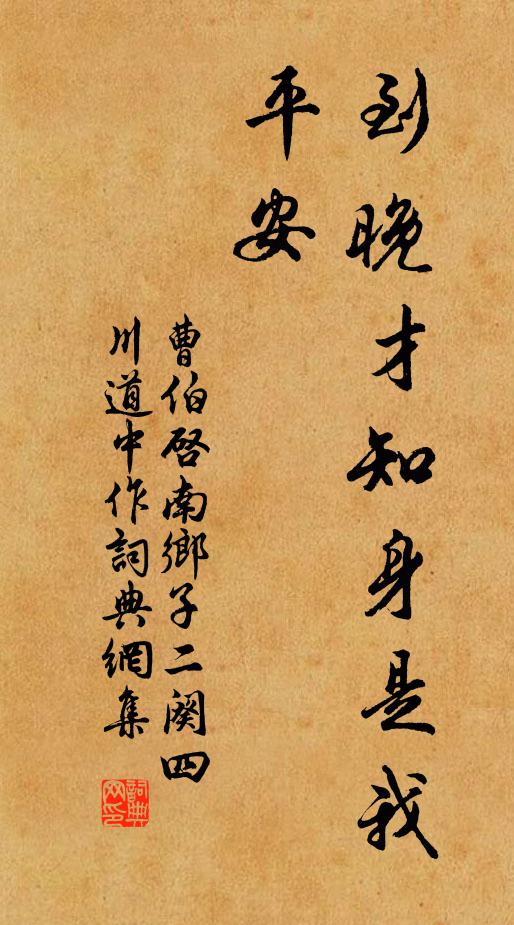 到晚才知身是我
平安
曹伯啓南鄉子二阕四
川道中作詞典網集
詞典
网印